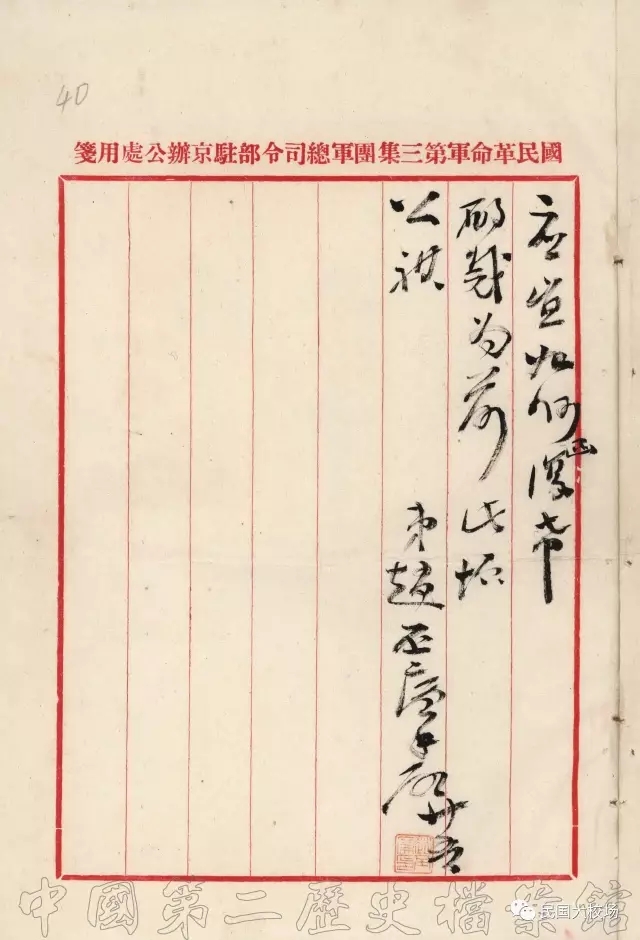 40
國民革命軍第三集團軍總司令部駐京辦公處用箋
应宜如何函復希
酌裁为荷此頌
公祺
弟趙丕廉手啟廿
中國第二歷史檔案館
民国大校场